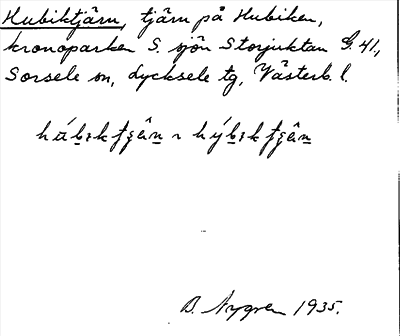 Hubiktjärn, tjärn på Hubiken,
kronoparken S. sjön Storjuktan G. 41,
Sorsele sn, Lycksele tg, Västerb. l.
B. Nygren 1935.